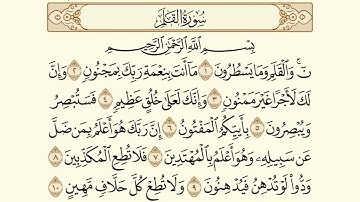 سُورَةُ الْقَلَمِ
بِسْمِ اللَّهِ الرَّحْمَٰنِ الرَّحِيمِ
نٓ ۚ وَالْقَلَمِ وَمَا يَسْطُرُونَ ١ مَا أَنتَ بِنِعْمَةِ رَبِّكَ بِمَجْنُونٍ ٢ وَإِنَّ
لَكَ لَأَجْرًا غَيْرَ مَمْنُونٍ ٣ وَإِنَّكَ لَعَلَىٰ خُلُقٍ عَظِيمٍ ٤ فَسَتُبْصِرُ
وَيُبْصِرُونَ ٥ بِأَييِّكُمُ الْمَفْتُونُ ٦ إِنَّ رَبَّكَ هُوَ أَعْلَمُ بِمَن ضَلَّ
عَن سَبِيلِهِ وَهُوَ أَعْلَمُ بِالْمُهْتَدِينَ ٧ فَلَا تُطِعِ الْمُكَذِّبِينَ ٨
وَدُّوا لَوْ تُدْهِنُ فَيُدْهِنُونَ ٩ وَلَا تُطِعْ كُلَّ حَلَّافٍ مَّهِينٍ ١٠